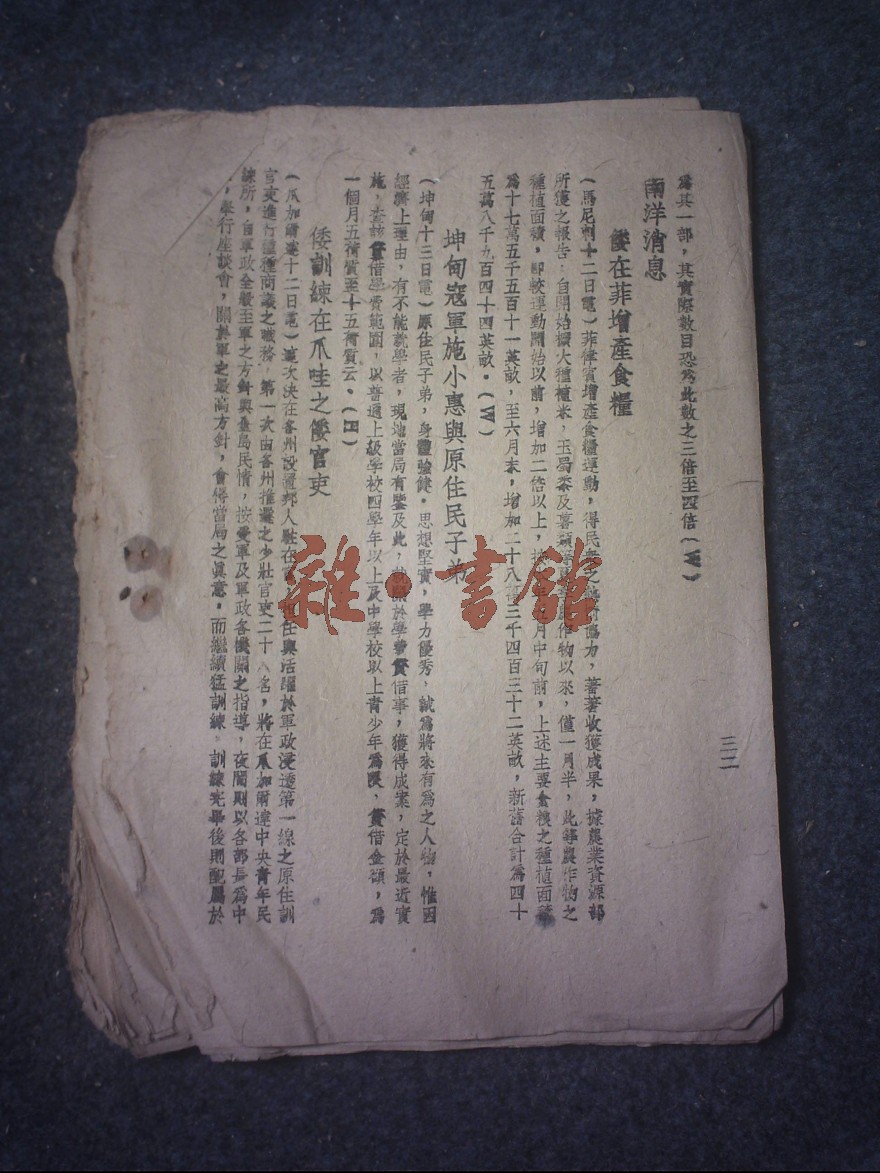 三二
為其一部，其實際數目恐為此數之三倍至四倍（W）
南洋消息
倭在菲增產食糧
（馬尼剌十二日電）菲律賓增產食糧運動，得民衆之 協力，著著收獲成果，據農業資源部
所獲之報告：自開始擴大種植米，玉蜀黍及薯類等 農作物以來，僅一月半，此等農作物之
種植面積，即較運動開始以前，增加二倍以上， 月中旬前，上述主要食糧之種植面積
為十七萬五千五百十一英畝，至六月末，增加二十八萬三千四百三十二英畝，新舊合計為四十
五萬八千九百四十四英畝。（W）
坤甸寇軍施小惠與原住民子弟
（坤甸十三日電）原住民子弟，身體強健，思想堅實，學力優秀，誠為將來有為之人物，惟因
經濟上理由，有不能就學者，現地當局有鑒及此， 於學費貸借事，獲得成案，定於最近實
施，查該貸借學費範圍，以普通上級學校四學年以上及中學校以上青少年為限，貸借金額，為
一個月五荷質至十五荷質云。（H）
倭訓練在爪哇之倭官吏
（爪加爾達十二日電）這次決在各州設置邦人駐在 担任與活躍於軍政浸透第一線之原住訓
官吏進行種種商議之職務，第一次由各州推選之少壯官吏二十八名，將在爪加爾達中央青年民
練所，自軍政全般至軍之方針與全島民情，按受軍及軍政各機關之指導，夜間則以各部長為中
，舉行座談會，關於軍之最高方針，會得當局之眞意，而繼續猛訓練，訓練完畢後則配屬於
雜·書館